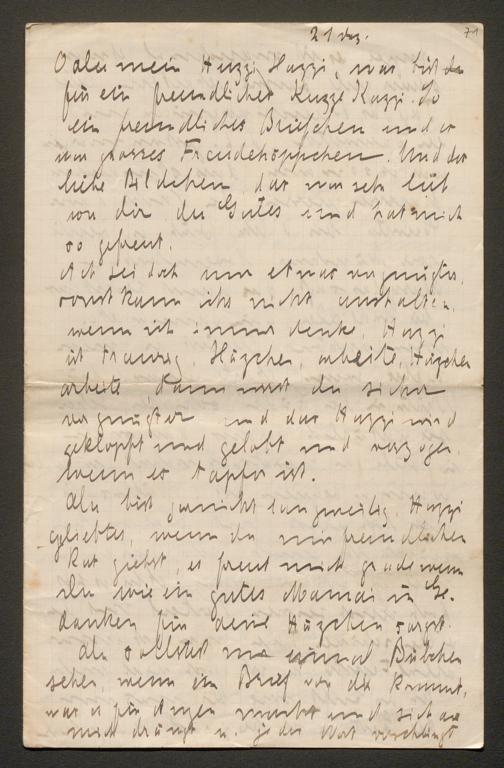 21 Dez.
71
O aber mein Huzzi Huzzi, was bist du
für ein freundlicher Kuzzi Kuzzi. So
ein freundliches Briefchen und er
war grosses Freudehöppchen. Und das
liebe Bildchen, das war sehr lieb
von dir, du Gutes und hat mich
so gefreut.
Ach sei doch nur etwas vergnügter,
sonst kann ichs nicht aushalten,
wenn ich immer denke, Huzzi
ist traurig. Häzchen, arbeite, Häzchen
arbeite, dann wirst du sicher
vergnügter und das Huzzi wird
geklopft und gelobt und verzogen,
wenn es tapfer ist.
Du bist gar nicht langweilig, Huzzi
geliebtes, wenn du mir freundlichen
Rat giebst, es freut mich grade wenn
du wie ein gutes Mamai in Ge-
danken für deine Häzchen sorgst.
Du solltest nur einmal Bübchen
sehen, wenn ein Brief von dir kommt,
was es für Augen macht und sich an
mich drängt u. jedes Wort verschlingt